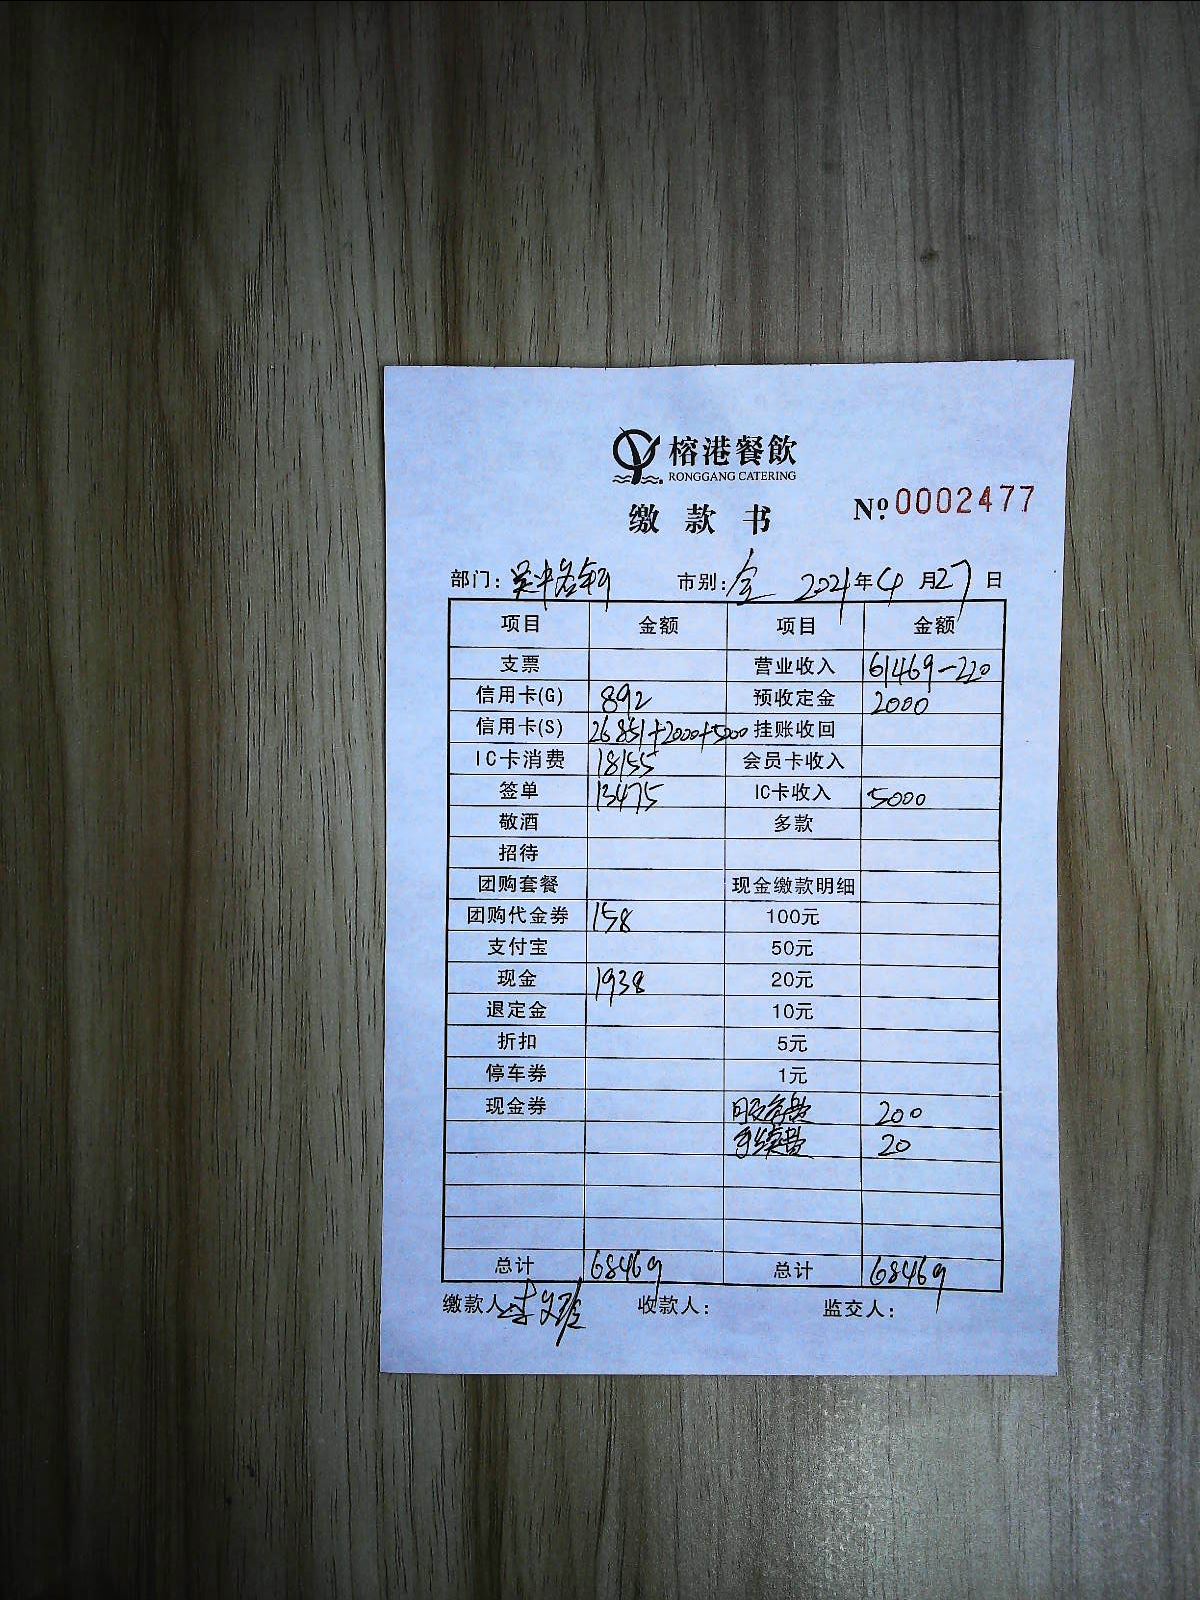 榕港餐飲
RONGGANG CATERING
缴款书 Nº.0002477
部门: 市别:全 2021年4月27日
项目 金额 项目 金额
支票 营业收入 61469-220
信用卡(G) 892 预收定金 2000
信用卡(S) 26851+2000+5000 挂账收回
IC卡消费 18155 会员卡收入
签单 13475 IC卡收入 5000
敬酒 多款
招待
团购套餐 现金缴款明细
团购代金券 158 100元
支付宝 50元
现金 1938 20元
退定金 10元
折扣 5元
停车券 1元
现金券 200
手续费 20
总计 68469 总计 68469
缴款人: 收款人: 监交人: